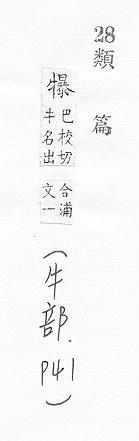 28 類篇
犦
巴校切
牛名出
合浦
文一
(牛部. P41)